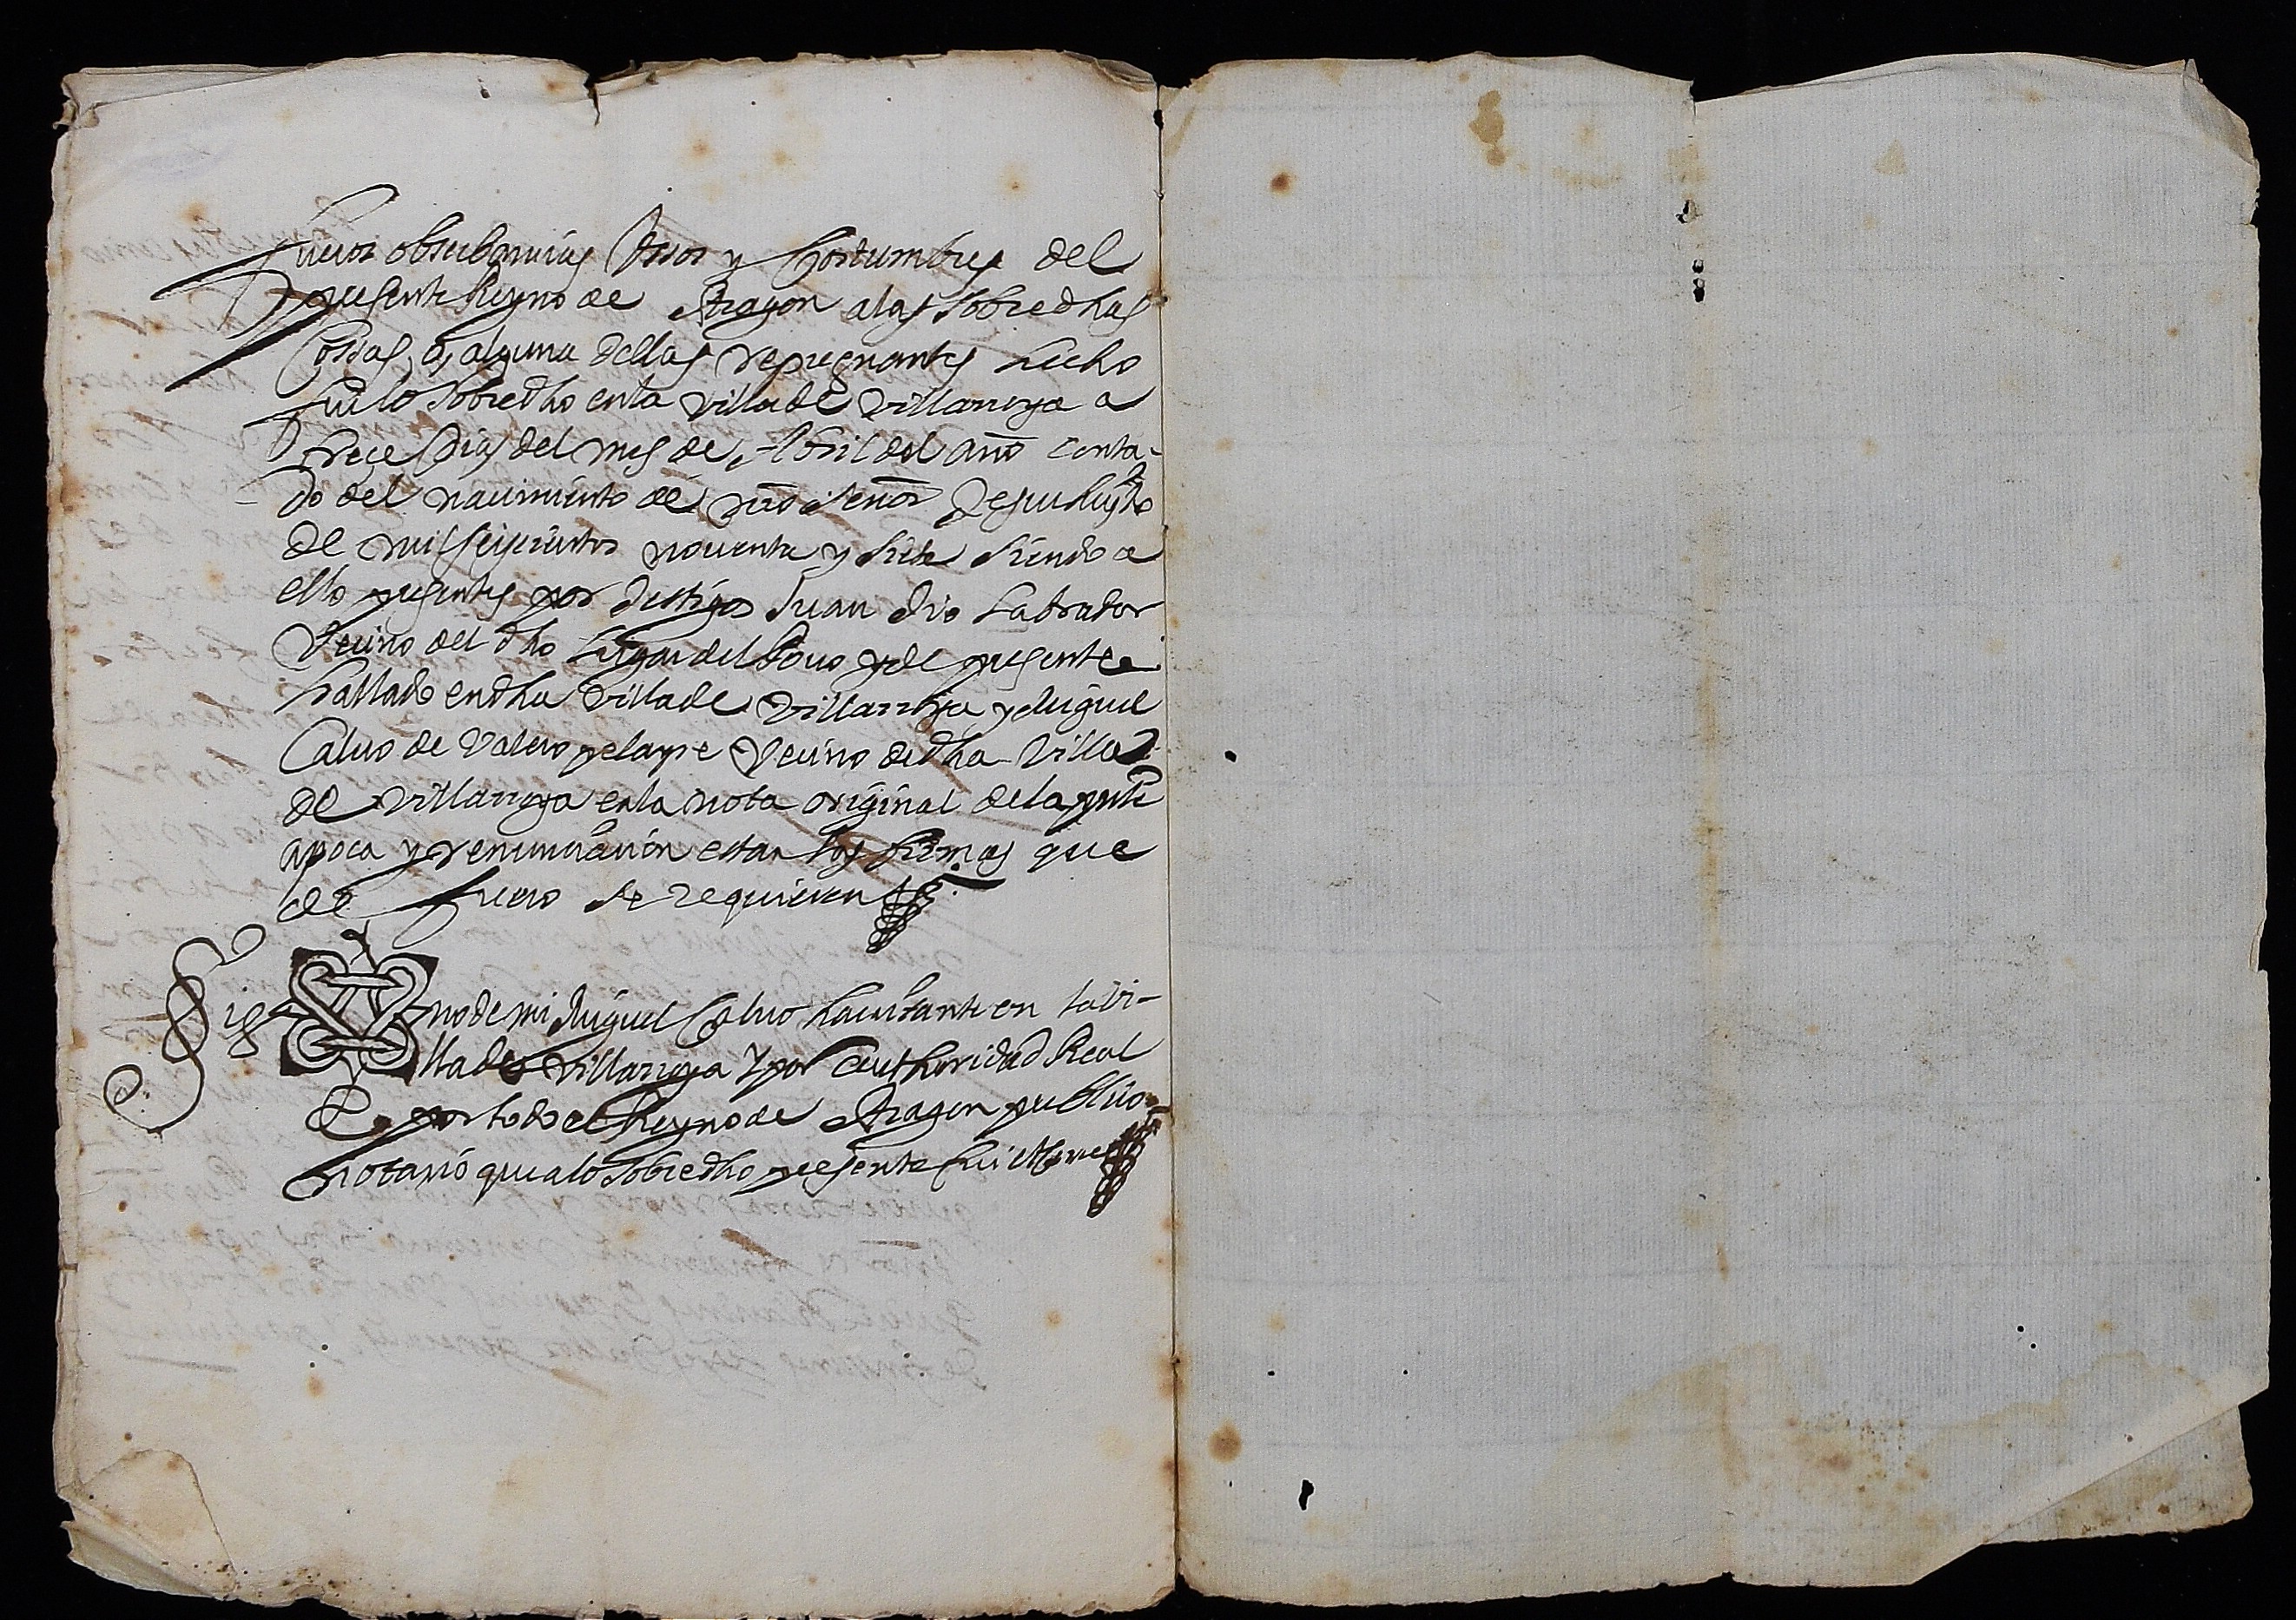 fueros obserbancias Ussos y Costumbres del
presente Reyno de Aragon a las sobredhas
Cossas, o, alguna dellas repugnantes hecho
fui lo sobredho en la villa de Villarroya a
trece Dias del mes de Abril del año conta-
do del nacimiento de nro Señor Jesuchristo
de mil seiscientos noventa y siete siendo a
ello presentes por testigos Juan Labrador
Vecino del dho Lugar del y de presente
hallado en dha villa de Villarroya y Miguel
Caluo de Valero pelayre Vecino de dha Villa
de Villarroya en la nota original de la pnte
apoca y renunciacion estan las firmas que
de fuero se requieren
Sig no de mi Miguel Caluo hauitante en la Vi-
lla de Villarroya Y por authoridad Real
por todo el Reyno de Aragon publico
notario que a lo sobredho presente fui